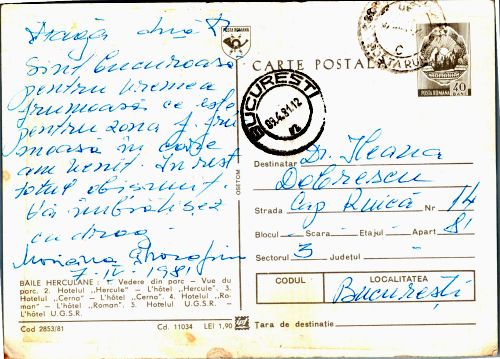 Dragă
Sînt bucuroasă
pentru vremea
frumoasă ce este
pentru zona f. fru
moasă în care
am venit. În rest
totul obișnuit.
Vă îmbrățișez
cu drag
7-IV-1981
BĂILE HERCULANE : 1. Vedere din parc — Vue du
parc. 2. Hotelul „Hercule" — L'hôtel „Hercule". 3.
Hotelul „Cerna" — L'hôtel „Cerna". 4. Hotelul „Ro-
man" — L'hôtel „Roman". 5. Hotelul U.G.S.R. —
L'hôtel U.G.S.R.
Cod 2853/81
Cd. 11034 LEI 1,90
OGETCM
POSTA ROMANA
CARTE POSTALĂ
BUCUREȘTI
09.4.81.12
POSTA ROMANA 40
Destinatar Dr. Ileana
Dobrescu
Strada Cap Ruică Nr 14
Blocul Scara Etajul Apart 81
Sectorul 3 Județul
CODUL
LOCALITATEA
București
Țara de destinație